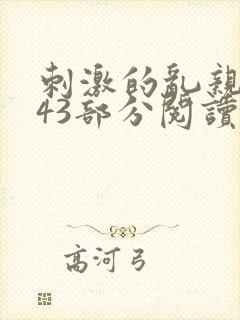 刺激的乱親
43部分閱讀
高河弓